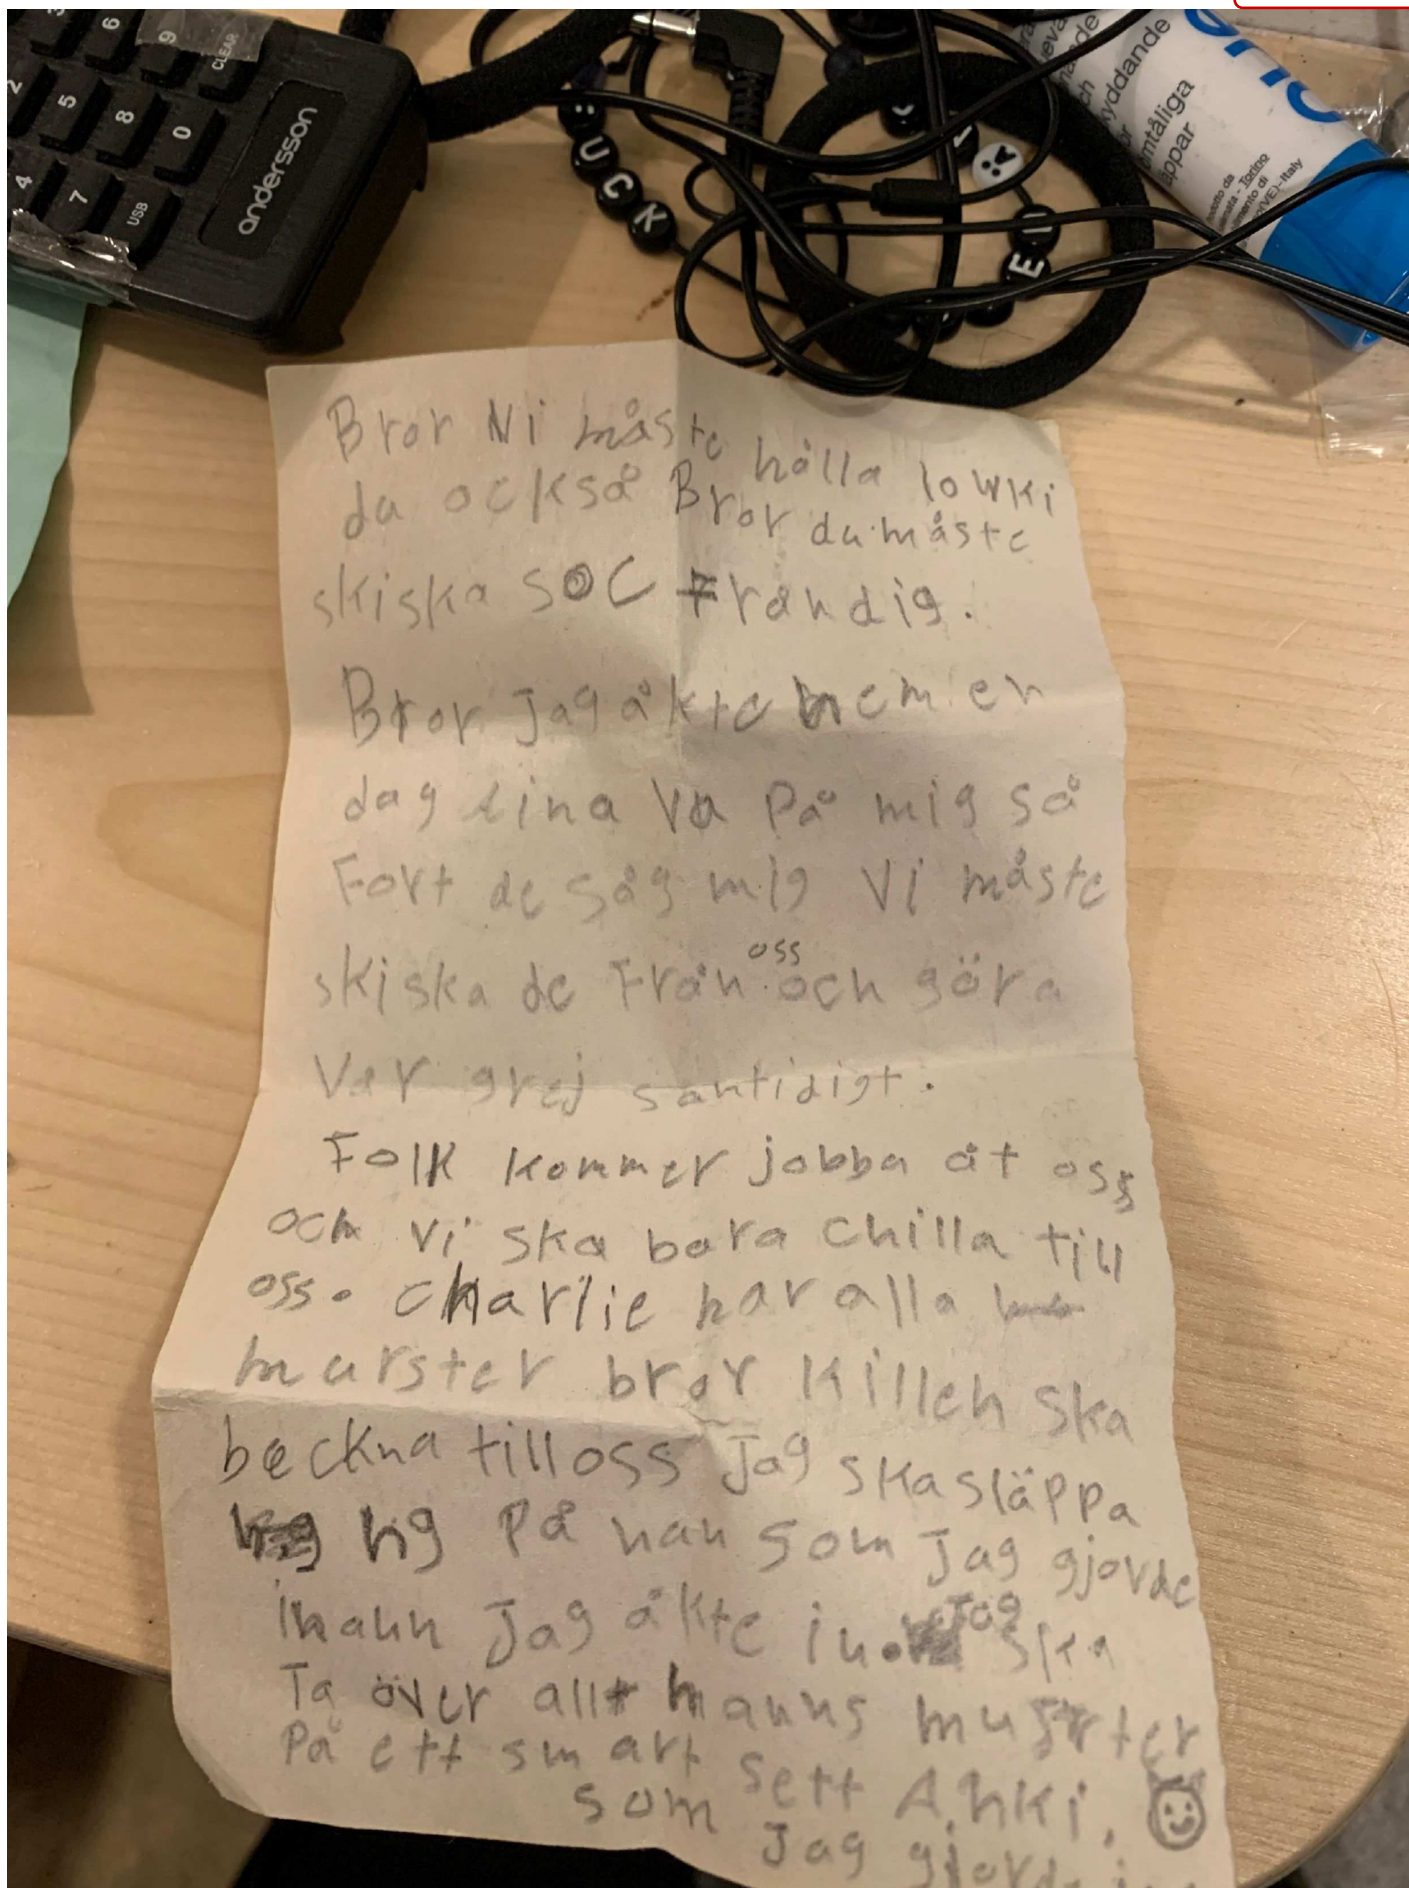 3
6
9
CLEAR
2
5
8
0
4
7
USB
andersson
BUCK
E
yddande
ömtåliga
Torino
(VE)-Italy
Bror Ni måste hålla lowki
du också Bror du måste
skiska soc Från dig.
Bror Jag åkte hem en
dag aina va på mig så
Fort de såg mig Vi måste
skiska de Från oss och göra
Vår grej santidigt.
Folk kommer jobba åt oss
och vi ska bara chilla till
oss. Charlie har alla
murster bror Killen ska
beckna till oss Jag ska släppa
hg på han som Jag gjorde
inann Jag åkte in. Jag ska
Ta över allt hanns murster
På ett smart sett Ahki.
som Jag gjorde